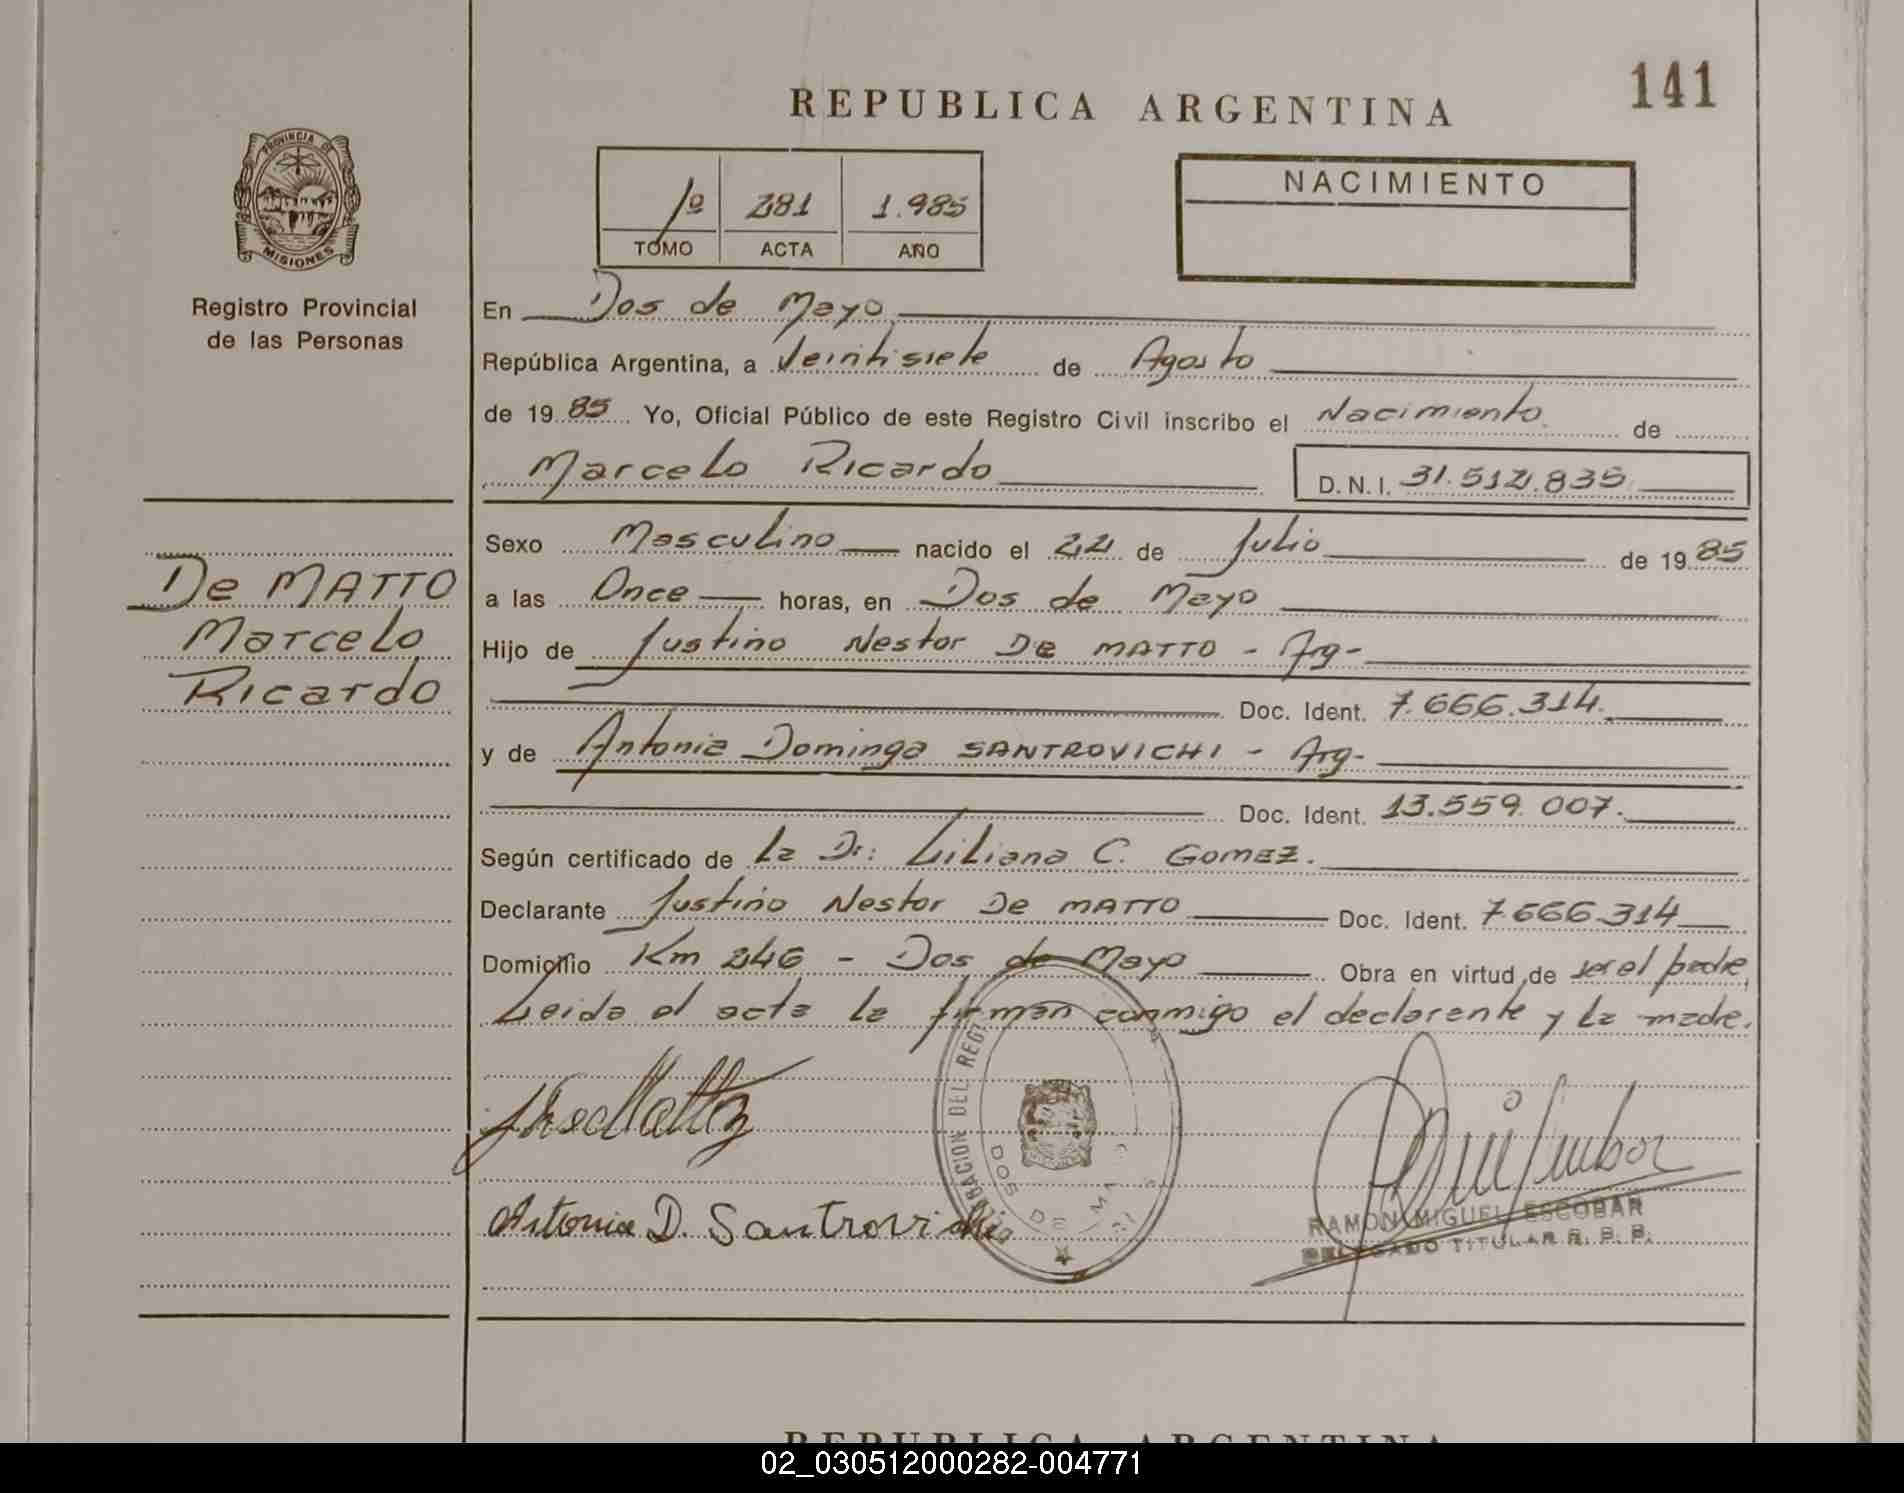 REPUBLICA ARGENTINA
141
PROVINCIA DE
MISIONES
Registro Provincial
de las Personas
1º 281 1.985
TOMO ACTA AÑO
NACIMIENTO
En Dos de Mayo
República Argentina, a Veintisiete de Agosto
de 1985 Yo, Oficial Público de este Registro Civil inscribo el Nacimiento de
Marcelo Ricardo D.N.I. 31.512.835
Sexo Masculino nacido el 22 de Julio de 1985
a las Once horas, en Dos de Mayo
Hijo de Justino Nestor De MATTO - Arg-
Doc. Ident. 7.666.314.
y de Antonia Dominga SANTROVICHI - Arg-
Doc. Ident. 13.559.007.
Según certificado de La Dr: Liliana C. Gomez.
Declarante Justino Nestor De MATTO Doc. Ident. 7.666.314
Domicilio Km 246 - Dos de Mayo Obra en virtud de ser el padre
Leida el acta la firman conmigo el declarente y la madre.
De MATTO
Marcelo
Ricardo
DEL REGI
DOS DE MAYO
Antonia D. Santrovichi
RAMON MIGUEL ESCOBAR
DELEGADO TITULAR R. P. P.
REPUBLICA ARGENTINA
02_030512000282-004771